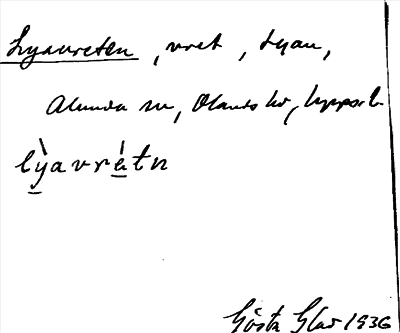 Lyavreten, vret, Lyan,
Alunda sn, Olands hd, Uppsala l.
lyavretn
Gösta Glas 1936